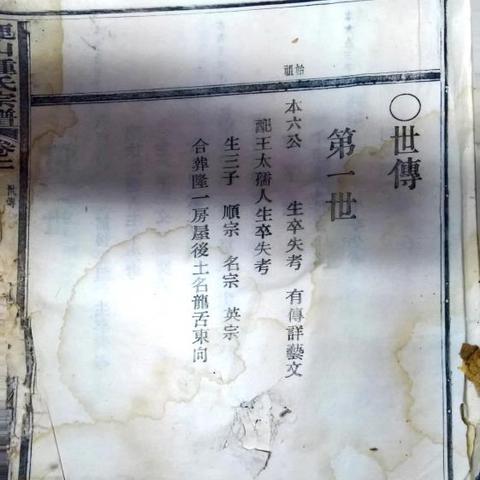 〇世傳
第一世
始祖
本六公 生卒失考 有傳詳藝文
配王太孺人生卒失考
生三子 順宗 名宗 英宗
合葬隆一房屋後土名龍舌東向
山鍾氏宗譜 卷之二 世傳